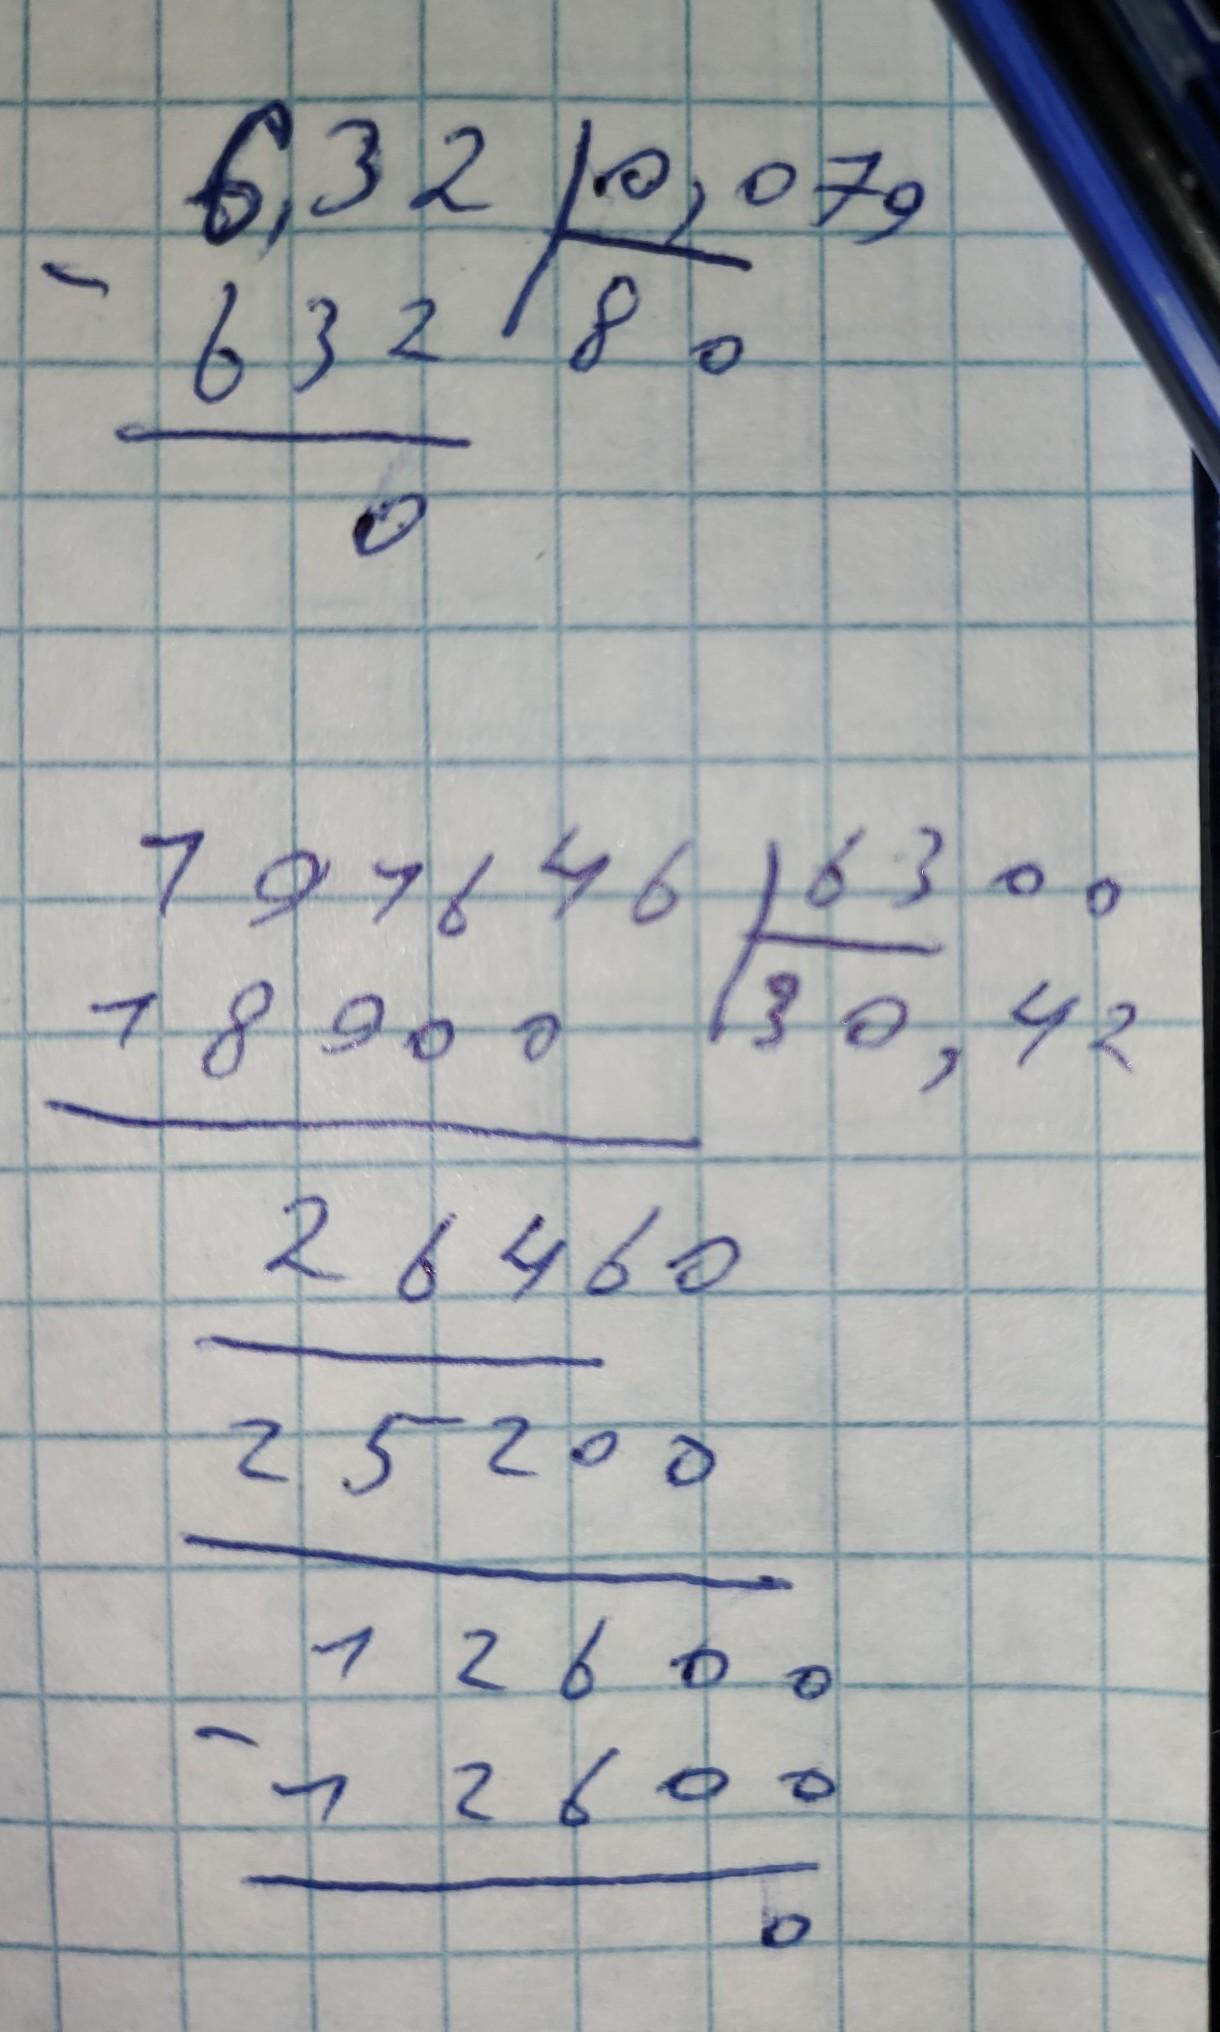 6,32 0,079
632 80
0
191646 6300
18900 30,42
26460
25200
12600
12600
0